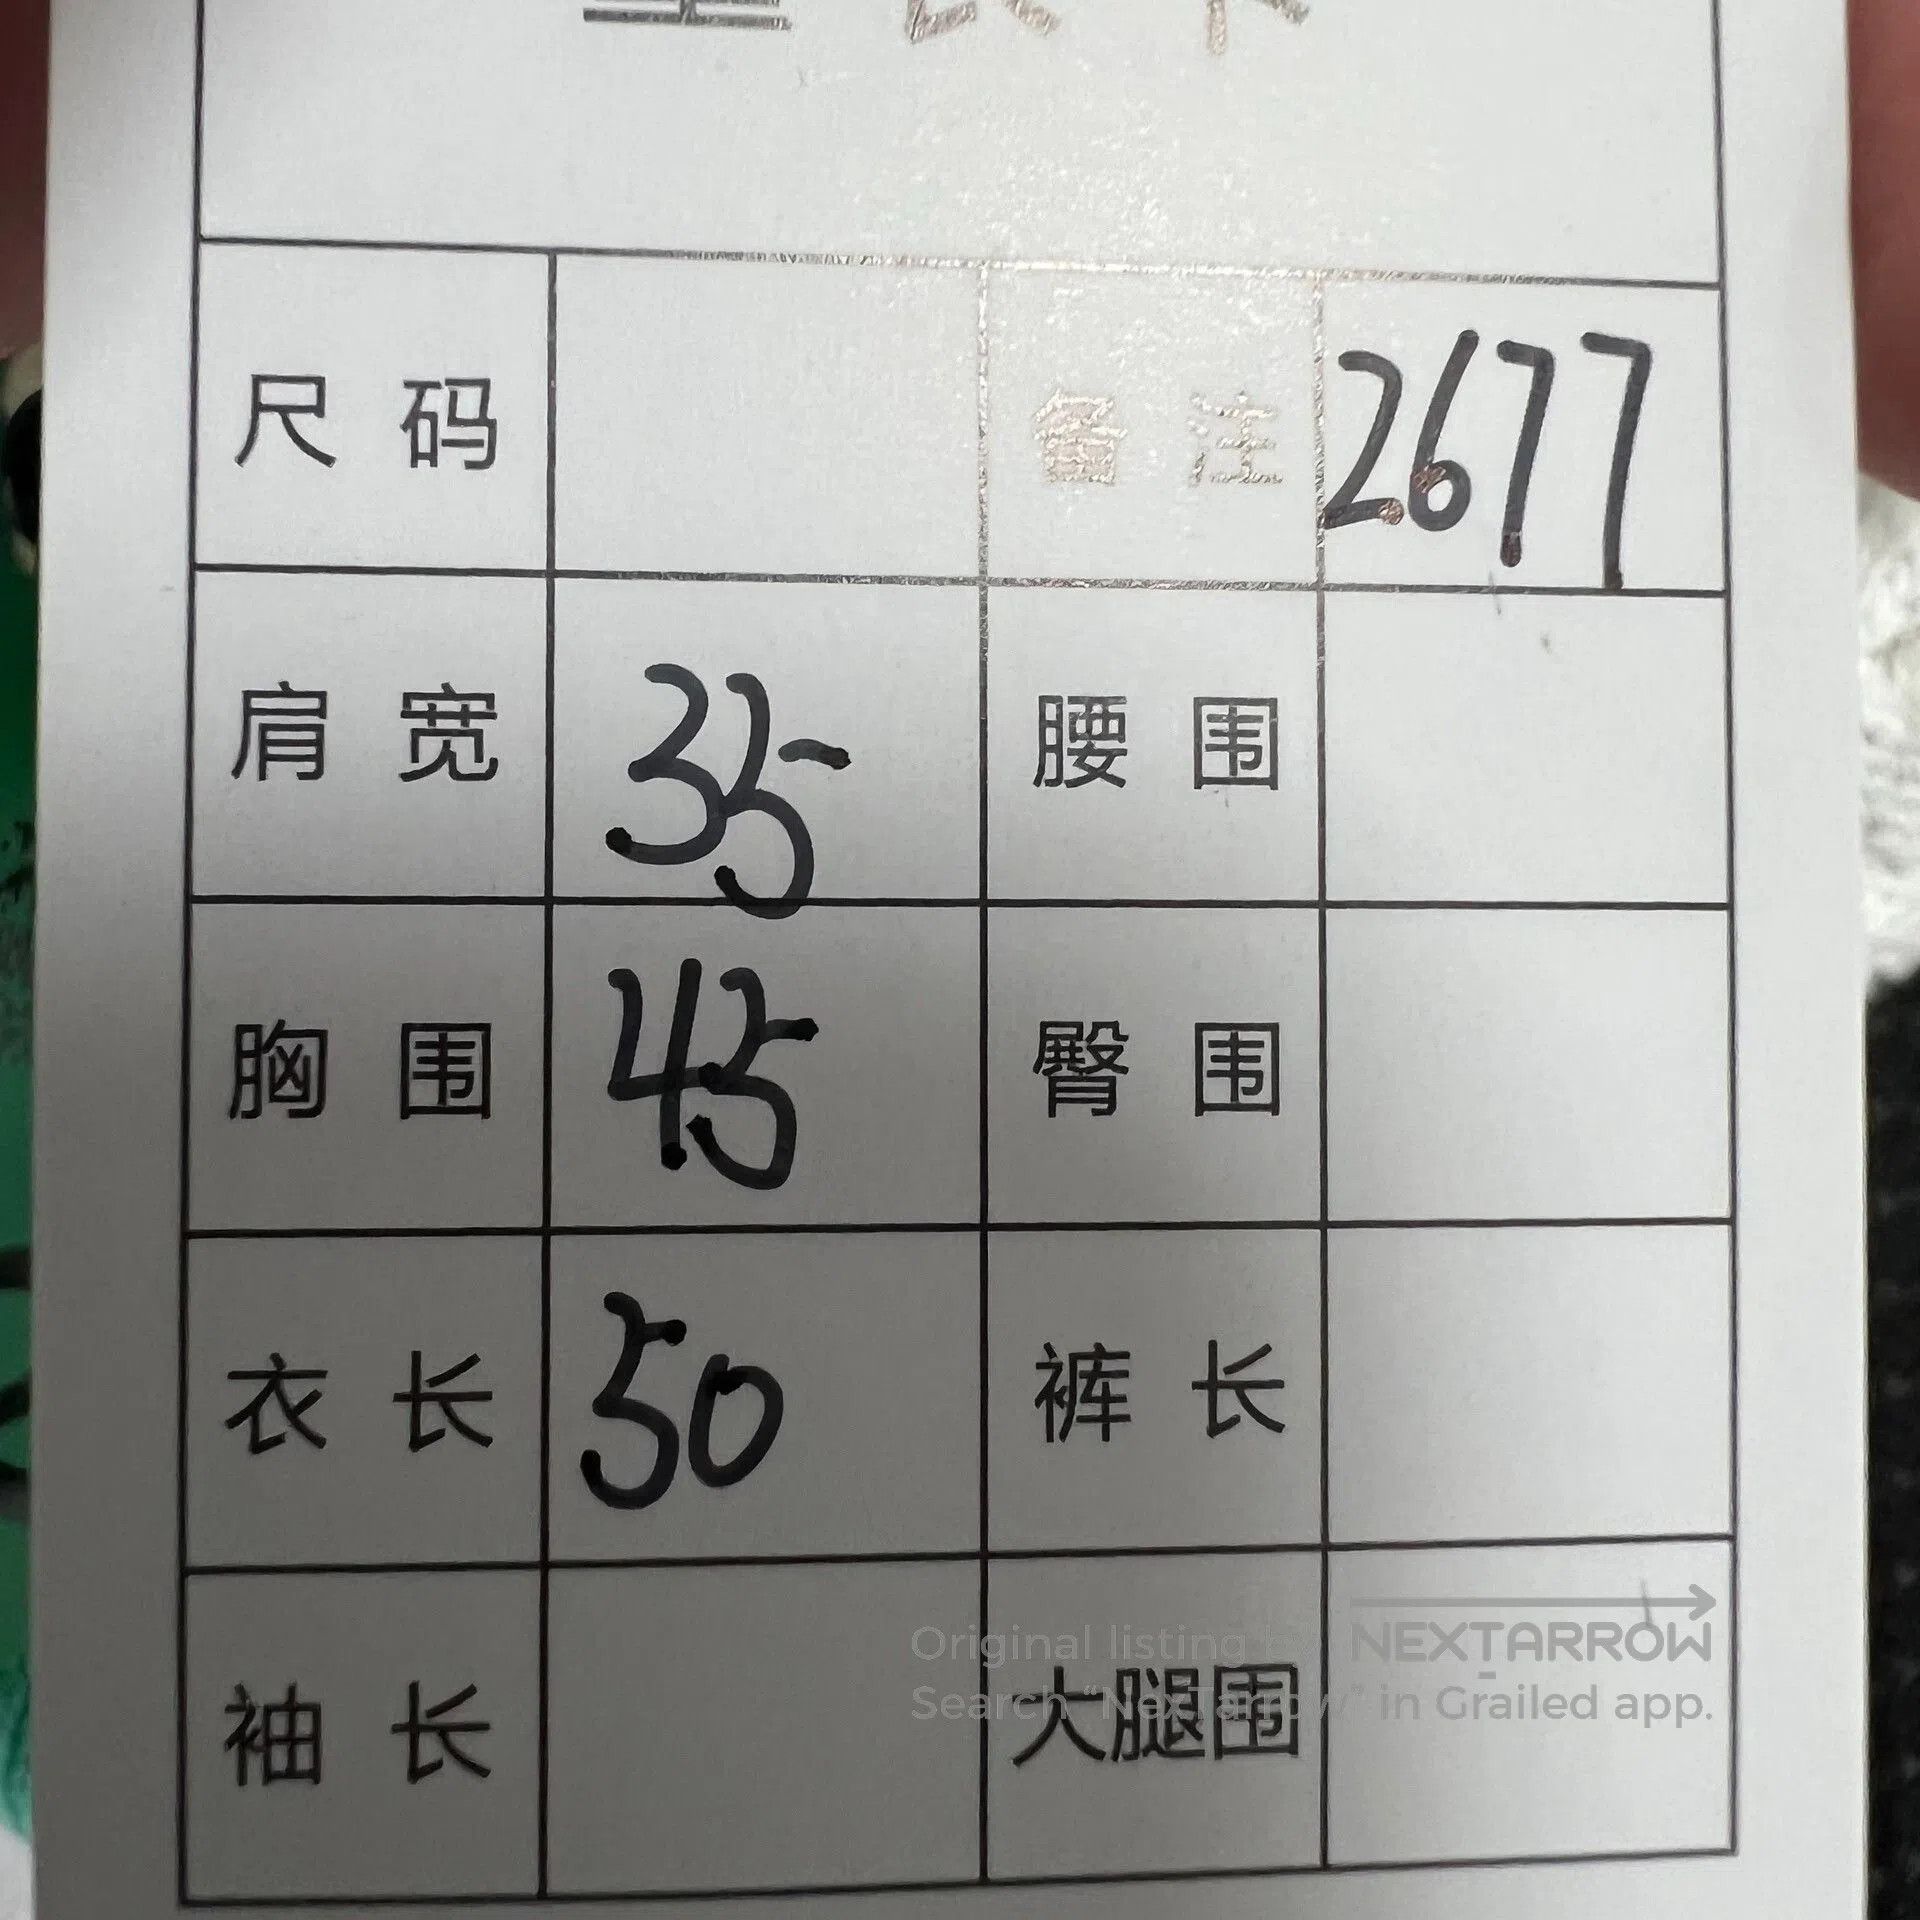 尺码 备注 2677
肩宽 35 腰围
胸围 45 臀围
衣长 50 裤长
袖长 大腿围
Original listing by NEXTARROW
Search “NexTarrow” in Grailed app.